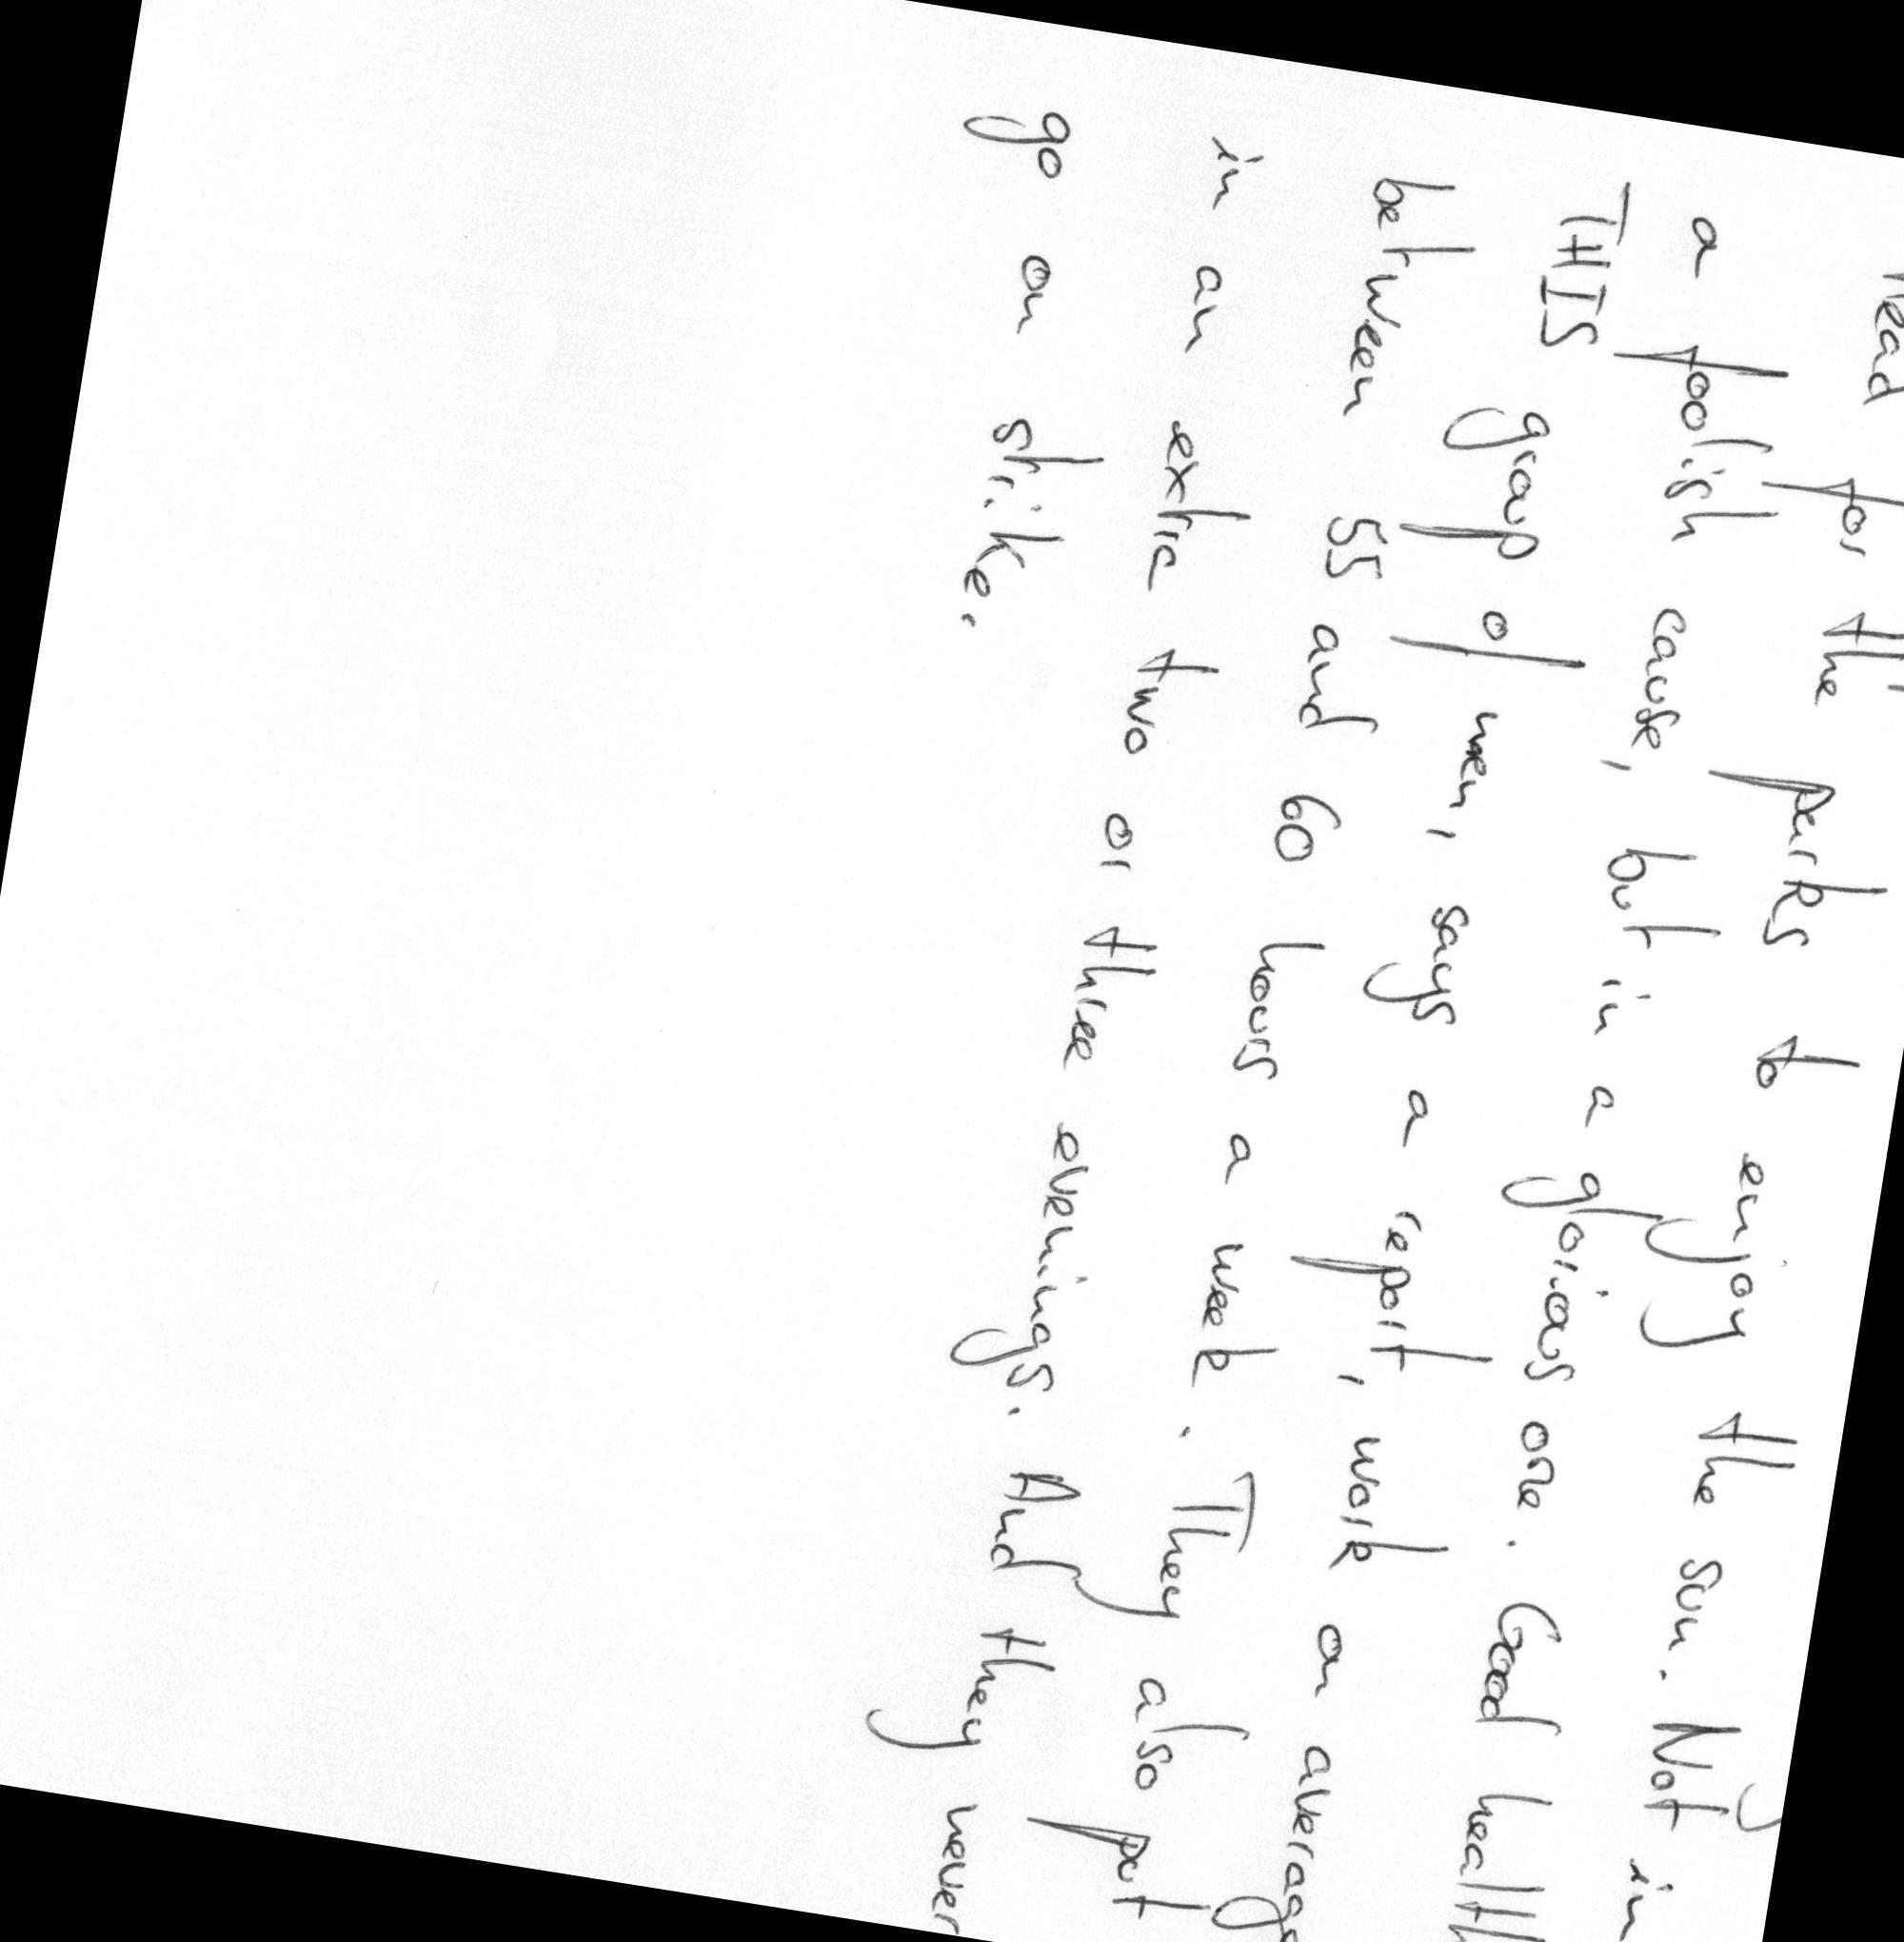 head for the parks to enjoy the sun. Not in
a foolish cause, but in a glorious one. Good health
THIS group of men, says a report, work on average
between 55 and 60 hours a week. They also put
in an extra two or three evenings. And they never
go on strike.